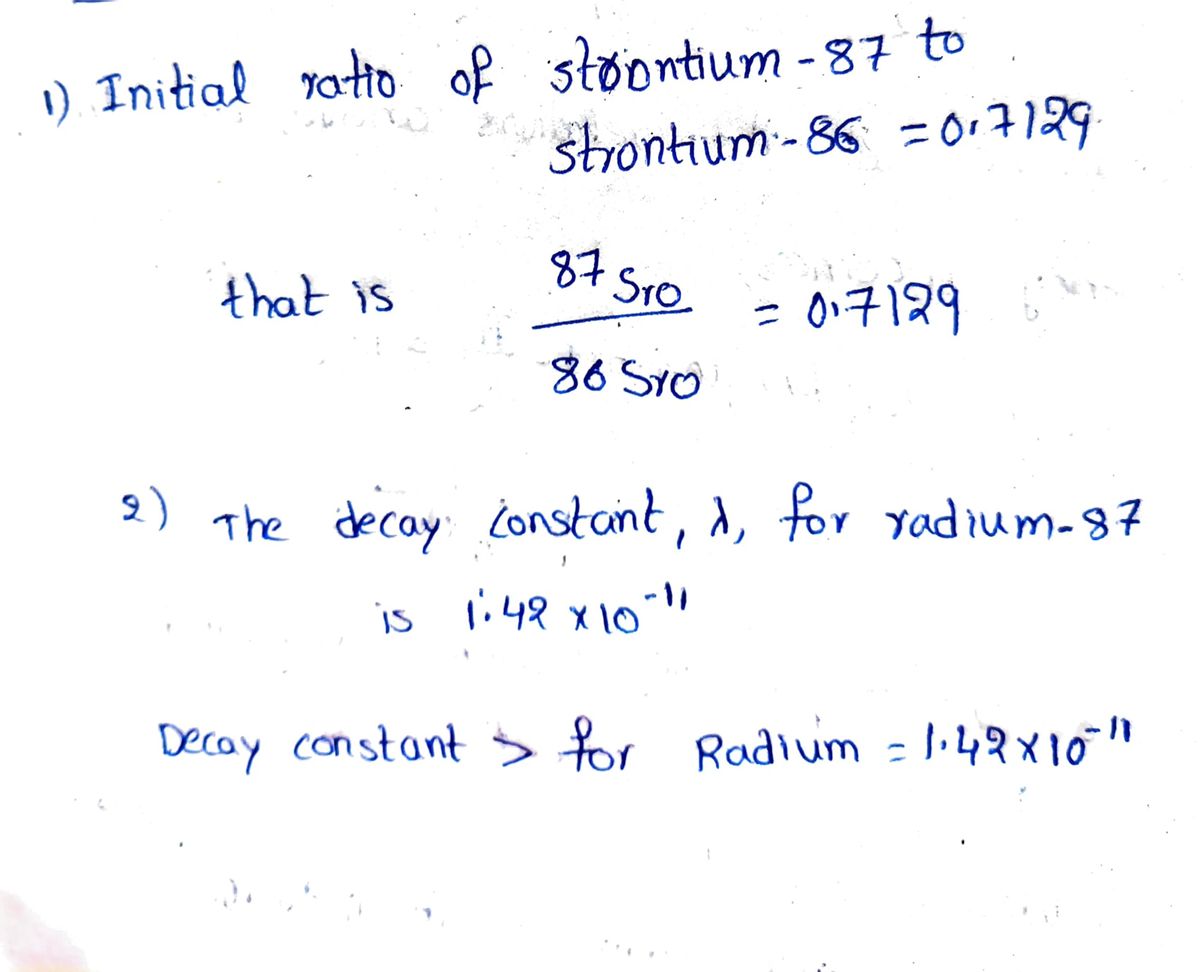 1) Initial ratio of strontium-87 to
strontium-86 = 0.7129
that is
87 Sro
= 0.7129
86 Sro
2) The decay constant, λ, for radium-87
is 1.42 x 10^-11
Decay constant > for Radium = 1.42 x 10^-11